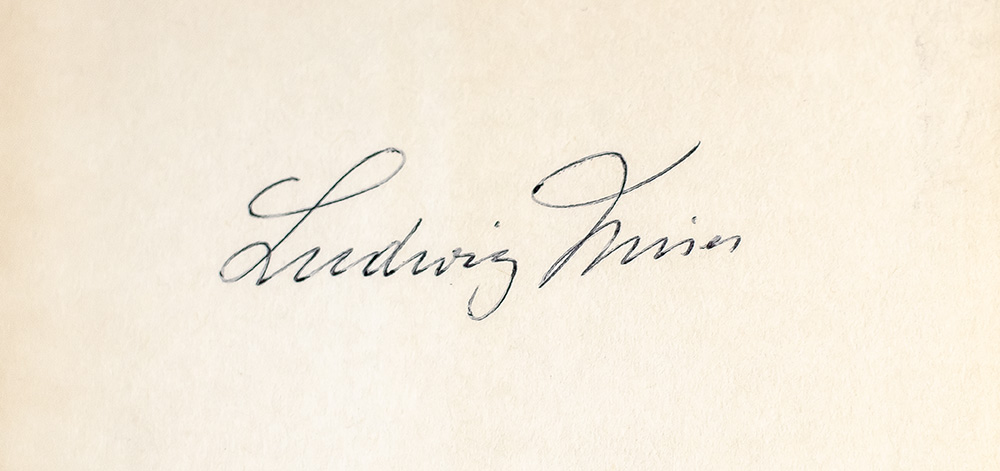 Ludwig Mises